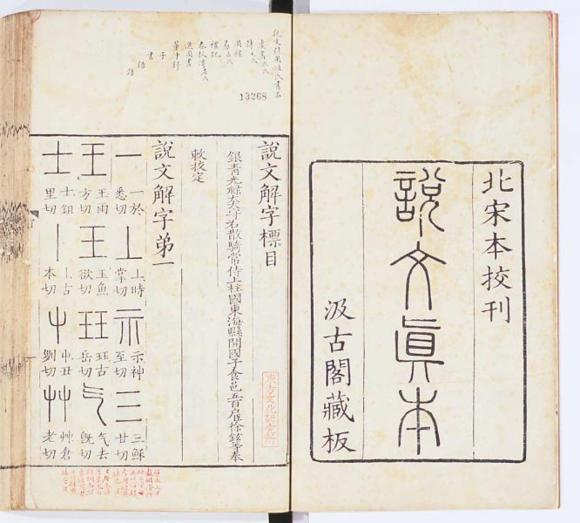 北宋本挍刊
說文眞本
汲古閣藏板
13268
說文解字標目
銀青光祿大夫守右散騎常侍上柱國東海縣開國子食邑五百户臣徐鉉等奉
敕挍定
說文解字第一
一 一於悉切 丄 丄時掌切 示 示神至切 三 三穌甘切
王 王雨方切 王 玉魚欲切 玨 玨古岳切 气 气去旣切
士 士鉏里切 丨 丨古本切 屮 屮丑切 艸 艸倉老切